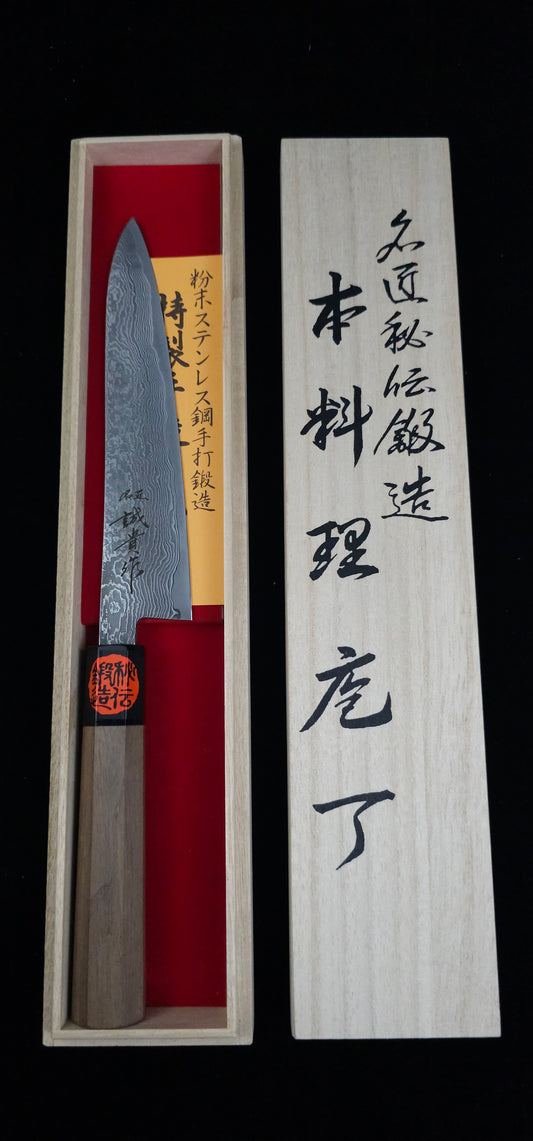 名匠秘伝鍛造
本料理庖丁
粉末ステンレス鋼手打鍛造
特製
誠貴作
秘伝
鍛造